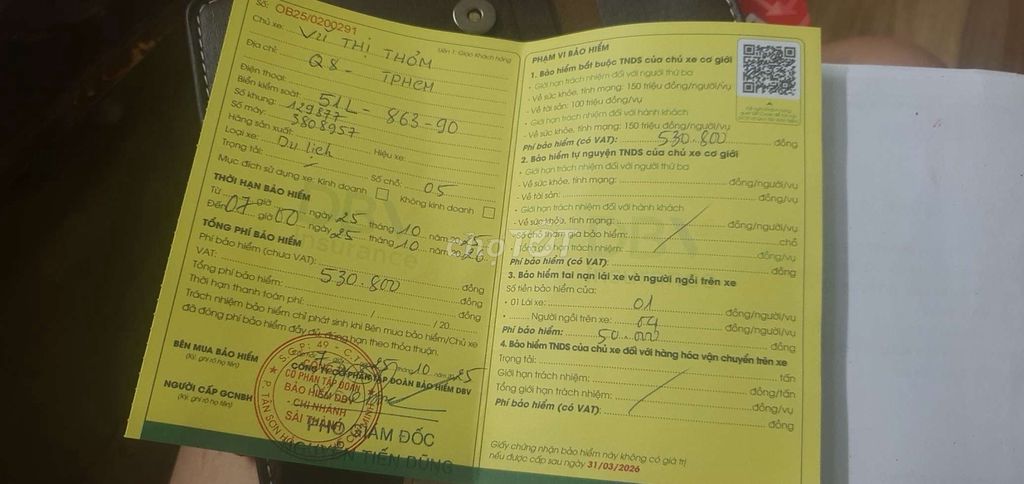 Số: OB25/0200291
Liên 1: Giao khách hàng
Chủ xe: VŨ THỊ THỎM
Địa chỉ: Q8 - TPHCM
Điện thoại:
Biển kiểm soát: 51L - 863-90
Số khung: 129877
Số máy: 3808957
Hãng sản xuất: Hiệu xe:
Loại xe: Du lịch
Trọng tải: / Số chỗ: 05
Mục đích sử dụng xe: Kinh doanh Không kinh doanh
THỜI HẠN BẢO HIỂM
Từ giờ ngày 25 tháng 10 năm 2025
Đến 07 giờ 00 ngày 25 tháng 10 năm 2026
TỔNG PHÍ BẢO HIỂM
Phí bảo hiểm (chưa VAT): đồng
VAT: đồng
Tổng phí bảo hiểm: 530.800 đồng
Thời hạn thanh toán phí: / / 20
Trách nhiệm bảo hiểm chỉ phát sinh khi Bên mua bảo hiểm/Chủ xe
đã đóng phí bảo hiểm đầy đủ, đúng hạn theo thỏa thuận.
BÊN MUA BẢO HIỂM
(Ký, ghi rõ họ tên)
CÔNG TY CỔ PHẦN TẬP ĐOÀN BẢO HIỂM DBV
NGƯỜI CẤP GCNBH
(Ký, ghi rõ họ tên)
CỔ PHẦN TẬP ĐOÀN
BẢO HIỂM DBV
- CHI NHÁNH
SÀI THÀNH
PHÓ GIÁM ĐỐC
NGUYỄN TIẾN DŨNG
PHẠM VI BẢO HIỂM
1. Bảo hiểm bắt buộc TNDS của chủ xe cơ giới
* Giới hạn trách nhiệm đối với người thứ ba
- Về sức khỏe, tính mạng: 150 triệu đồng/người/vụ
- Về tài sản: 100 triệu đồng/vụ
* Giới hạn trách nhiệm đối với hành khách
- Về sức khỏe, tính mạng: 150 triệu đồng/người/vụ
Phí bảo hiểm (có VAT): 530.800 đồng
2. Bảo hiểm tự nguyện TNDS của chủ xe cơ giới
* Giới hạn trách nhiệm đối với người thứ ba
- Về sức khỏe, tính mạng: đồng/người/vụ
- Về tài sản: đồng/vụ
* Giới hạn trách nhiệm đối với hành khách
- Về sức khỏe, tính mạng: đồng/người/vụ
Số chỗ tham gia bảo hiểm: chỗ
* Tổng giới hạn trách nhiệm: đồng/vụ
Phí bảo hiểm (có VAT): đồng
3. Bảo hiểm tai nạn lái xe và người ngồi trên xe
Số tiền bảo hiểm của:
• 01 Lái xe: 01 đồng/người/vụ
• Người ngồi trên xe: 04 đồng/người/vụ
Phí bảo hiểm: 50.000 đồng
4. Bảo hiểm TNDS của chủ xe đối với hàng hóa vận chuyển trên xe
Trọng tải: tấn
Giới hạn trách nhiệm: đồng/tấn
Tổng giới hạn trách nhiệm: đồng/vụ
Phí bảo hiểm (có VAT): đồng
Giấy chứng nhận bảo hiểm này không có giá trị
nếu được cấp sau ngày 31/03/2026
chợTỐT